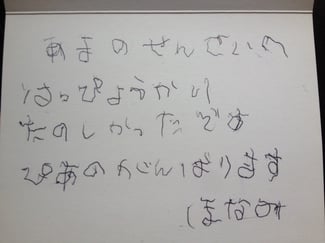 あまのせんせいへ
はっぴょうかい
たのしかったです
ぴあのがんばります
ほなみ